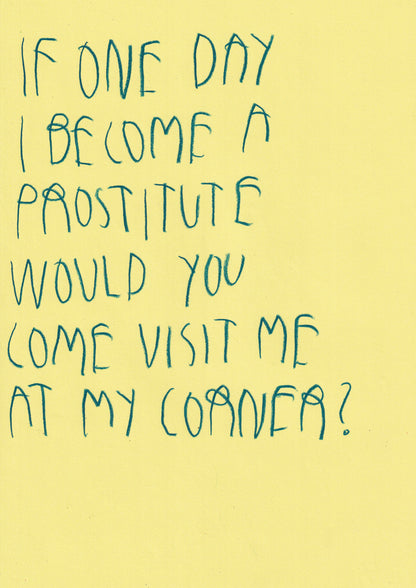 IF ONE DAY
I BECOME A
PROSTITUTE
WOULD YOU
COME VISIT ME
AT MY CORNER?